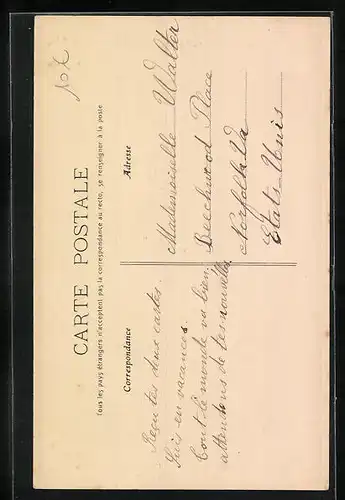 CARTE POSTALE
Tous les pays étrangers n'acceptent pas la correspondance au recto, se renseigner à la poste
Correspondance
Reçu tes deux cartes.
Suis en vacances.
Tout le monde va bien.
attendons de tes nouvelles.
Adresse
Mademoiselle Walter
Beechwood Place
Norfolk Va
États Unis